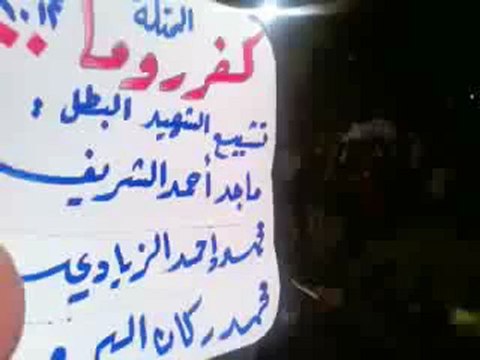 المحتلة
كفرروما
تشييع الشهيد البطل :
ماجد أحمد الشريف
محمد احمد الزيادي
محمد ركان